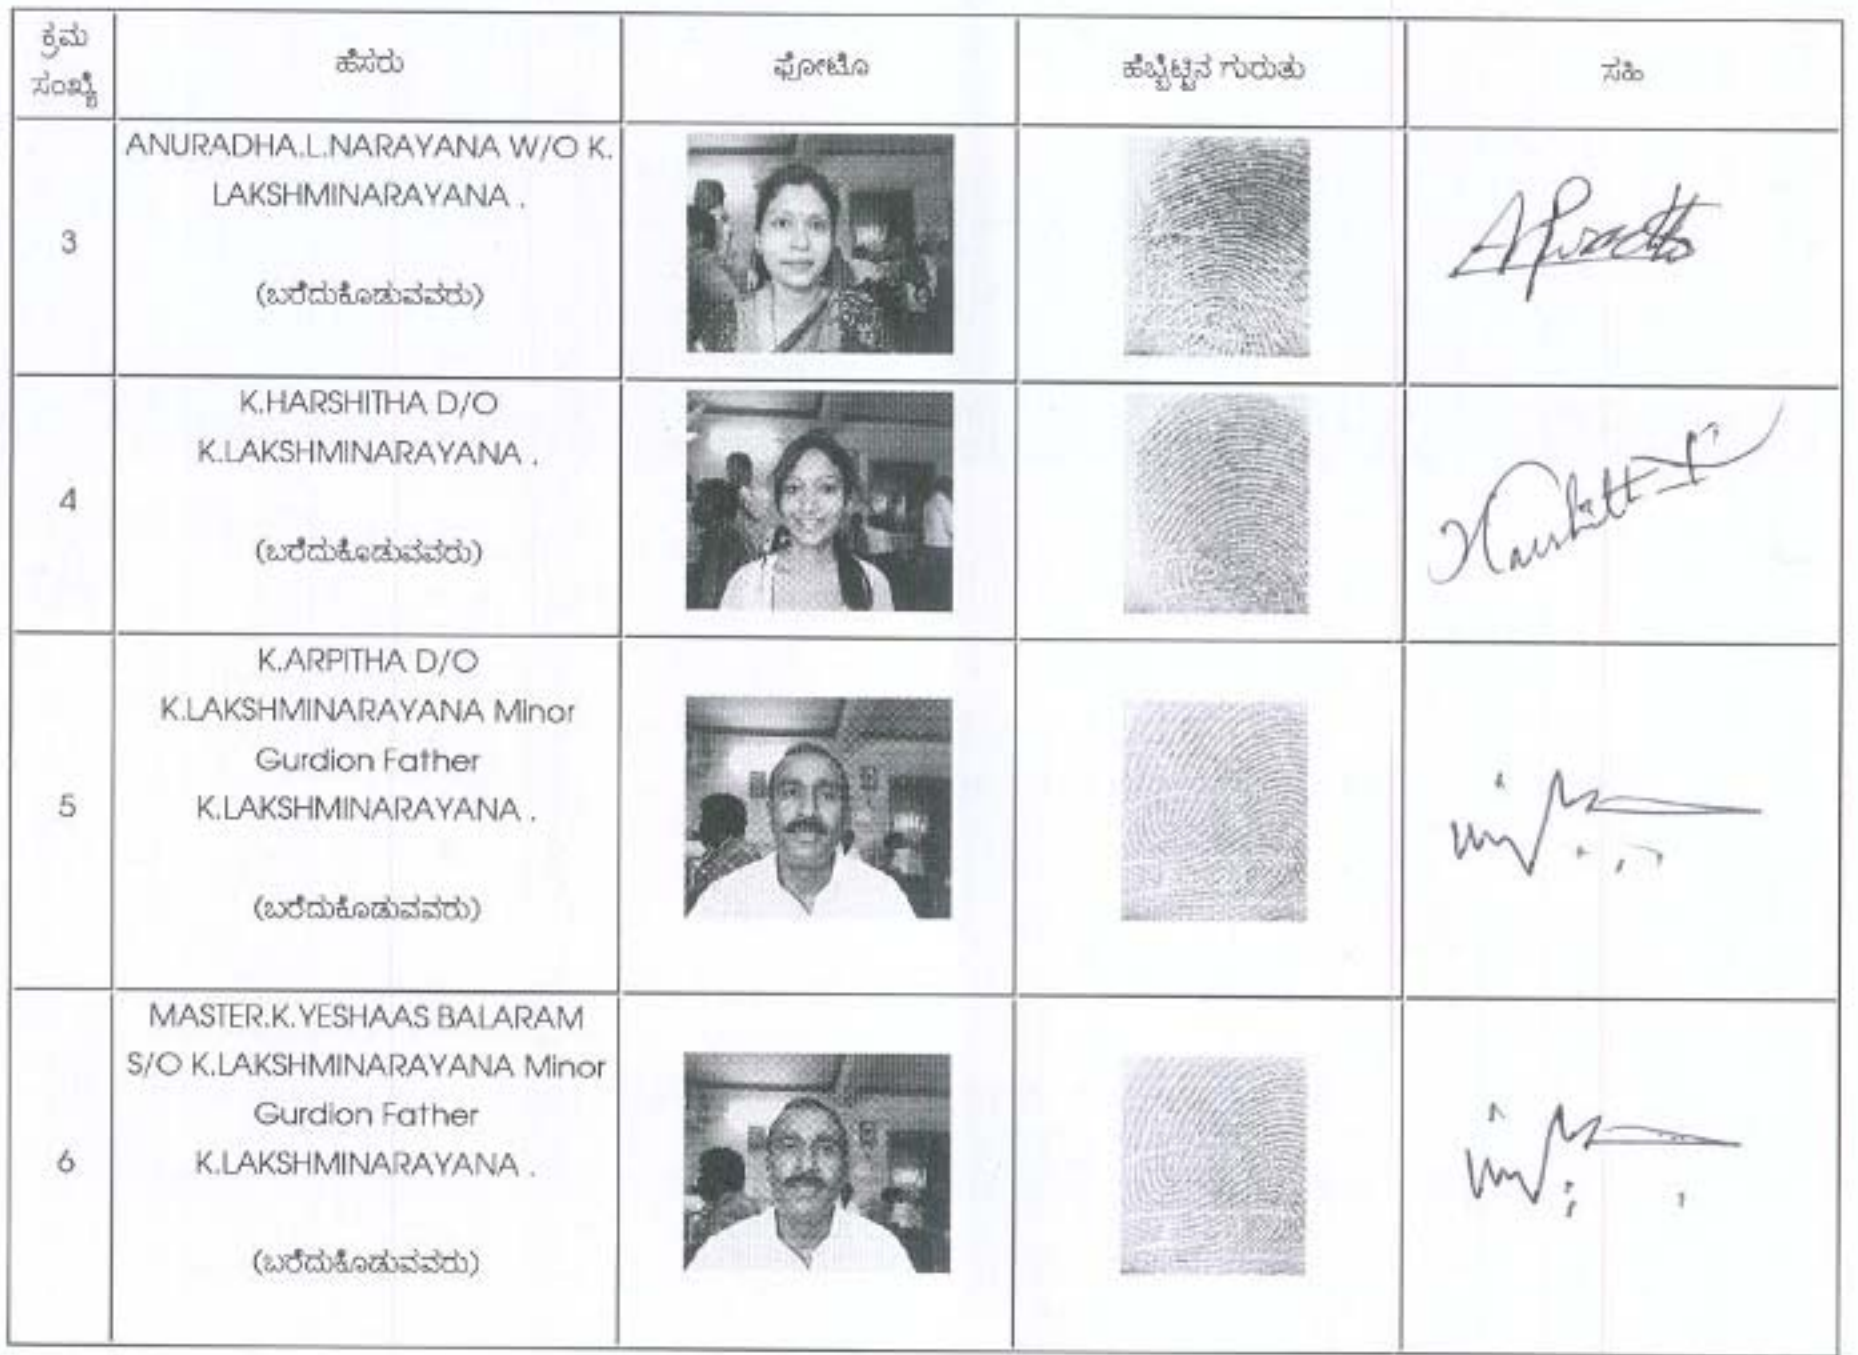 ಕ್ರಮ
ಸಂಖ್ಯೆ
ಹೆಸರು
ಫೋಟೊ
ಹೆಬ್ಬೆಟ್ಟಿನ ಗುರುತು
ಸಹಿ
3
ANURADHA.L.NARAYANA W/O K.
LAKSHMINARAYANA .
(ಬರೆದುಕೊಡುವವರು)
4
K.HARSHITHA D/O
K.LAKSHMINARAYANA .
(ಬರೆದುಕೊಡುವವರು)
5
K.ARPITHA D/O
K.LAKSHMINARAYANA Minor
Gurdion Father
K.LAKSHMINARAYANA .
(ಬರೆದುಕೊಡುವವರು)
6
MASTER.K.YESHAAS BALARAM
S/O K.LAKSHMINARAYANA Minor
Gurdion Father
K.LAKSHMINARAYANA .
(ಬರೆದುಕೊಡುವವರು)